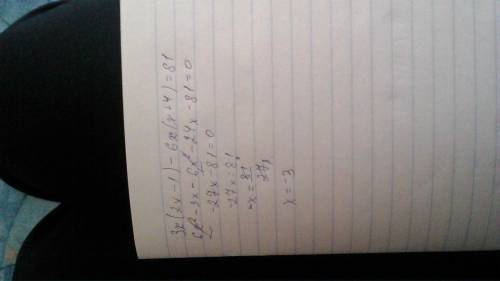 3x(2x-1)-6x(x+4)=81
6x²-3x-6x²-24x-81=0
-27x-81=0
-27x=81
-x=81/27
x=-3